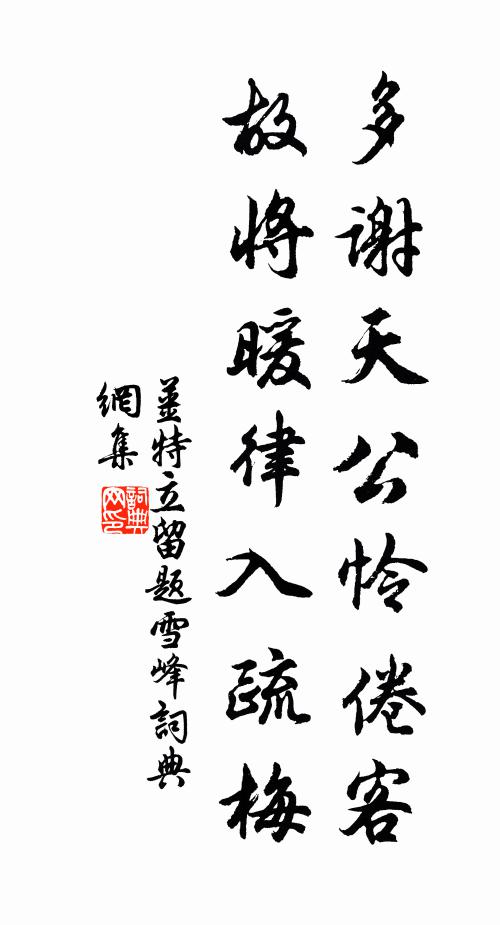 多謝天公怜倦客
故將暖律入疏梅
姜特立留题雪峰詞典
網集
詞典网印